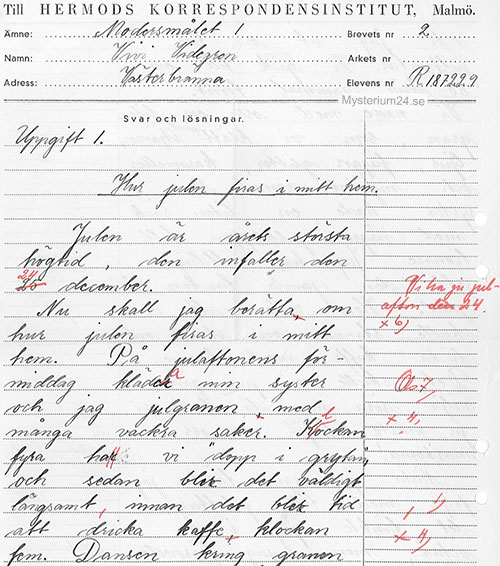 Till HERMODS KORRESPONDENSINSTITUT, Malmö.
Ämne: Modersmålet 1 Brevets nr 2
Namn: Vivi Videgren Arkets nr
Adress: Västerbränna Elevens nr R187229
Mysterium24.se
Svar och lösningar.
Uppgift 1.
Hur julen firas i mitt hem.
Julen är årets största
högtid, den infaller den
24
25 december. Vi ha ju jul-
afton den 24.
Nu skall jag berätta, om × 6,
hur julen firas i mitt
hem. På julaftonens för-
middag kläder a min syster Ob 7,
och jag julgranen, med × 4,
många vackra saker. Klockan l
fyra har vi "dopp i grytan",
och sedan blir det väldigt
långsamt, innan det blir tid 1,
att dricka kaffe, klockan × 4,
fem. Dansen kring granen